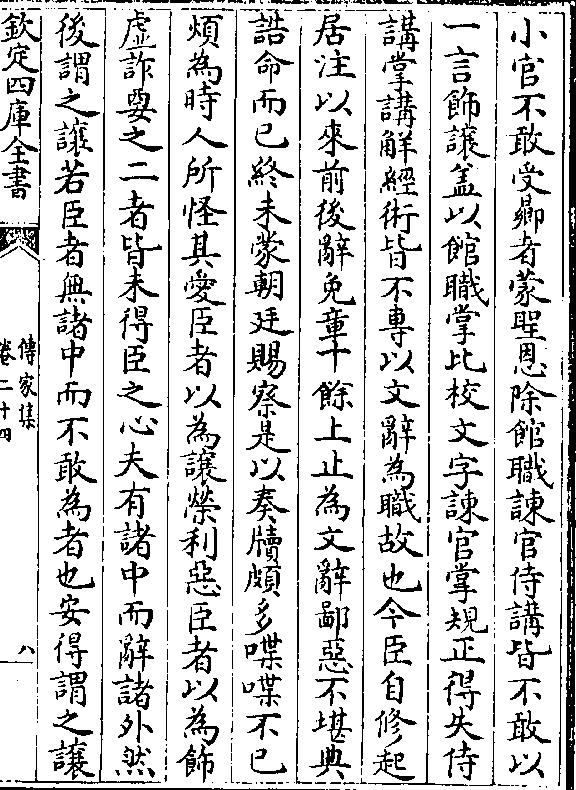 小官不敢受鄕者蒙聖恩除館職諫官侍講皆不敢以
一言飾讓盖以館職掌比校文字諫官掌規正得失侍
講掌講解經術皆不專以文辭為職故也今臣自修起
居注以來前後辭免章十餘上止為文辭鄙惡不堪典
誥命而已終未蒙朝廷賜察是以奏牘頗多喋喋不已
煩為時人所怪其愛臣者以為讓榮利惡臣者以為飾
虛詐要之二者皆未得臣之心夫有諸中而辭諸外然
後謂之讓若臣者無諸中而不敢為者也安得謂之讓
欽定四庫全書
傳家集
卷二十四
八